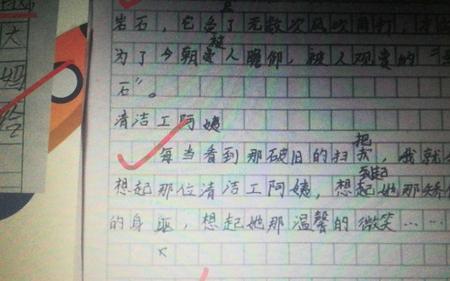 岩石，它含了无数次风吹雨打，才
为了今朝被人瞻仰，被人观赏的"
石"。
清洁工阿姨
每当看到那破旧的扫把，我就
想起那位清洁工阿姨，想起她那矫
的身躯，想起她那温馨的微笑……